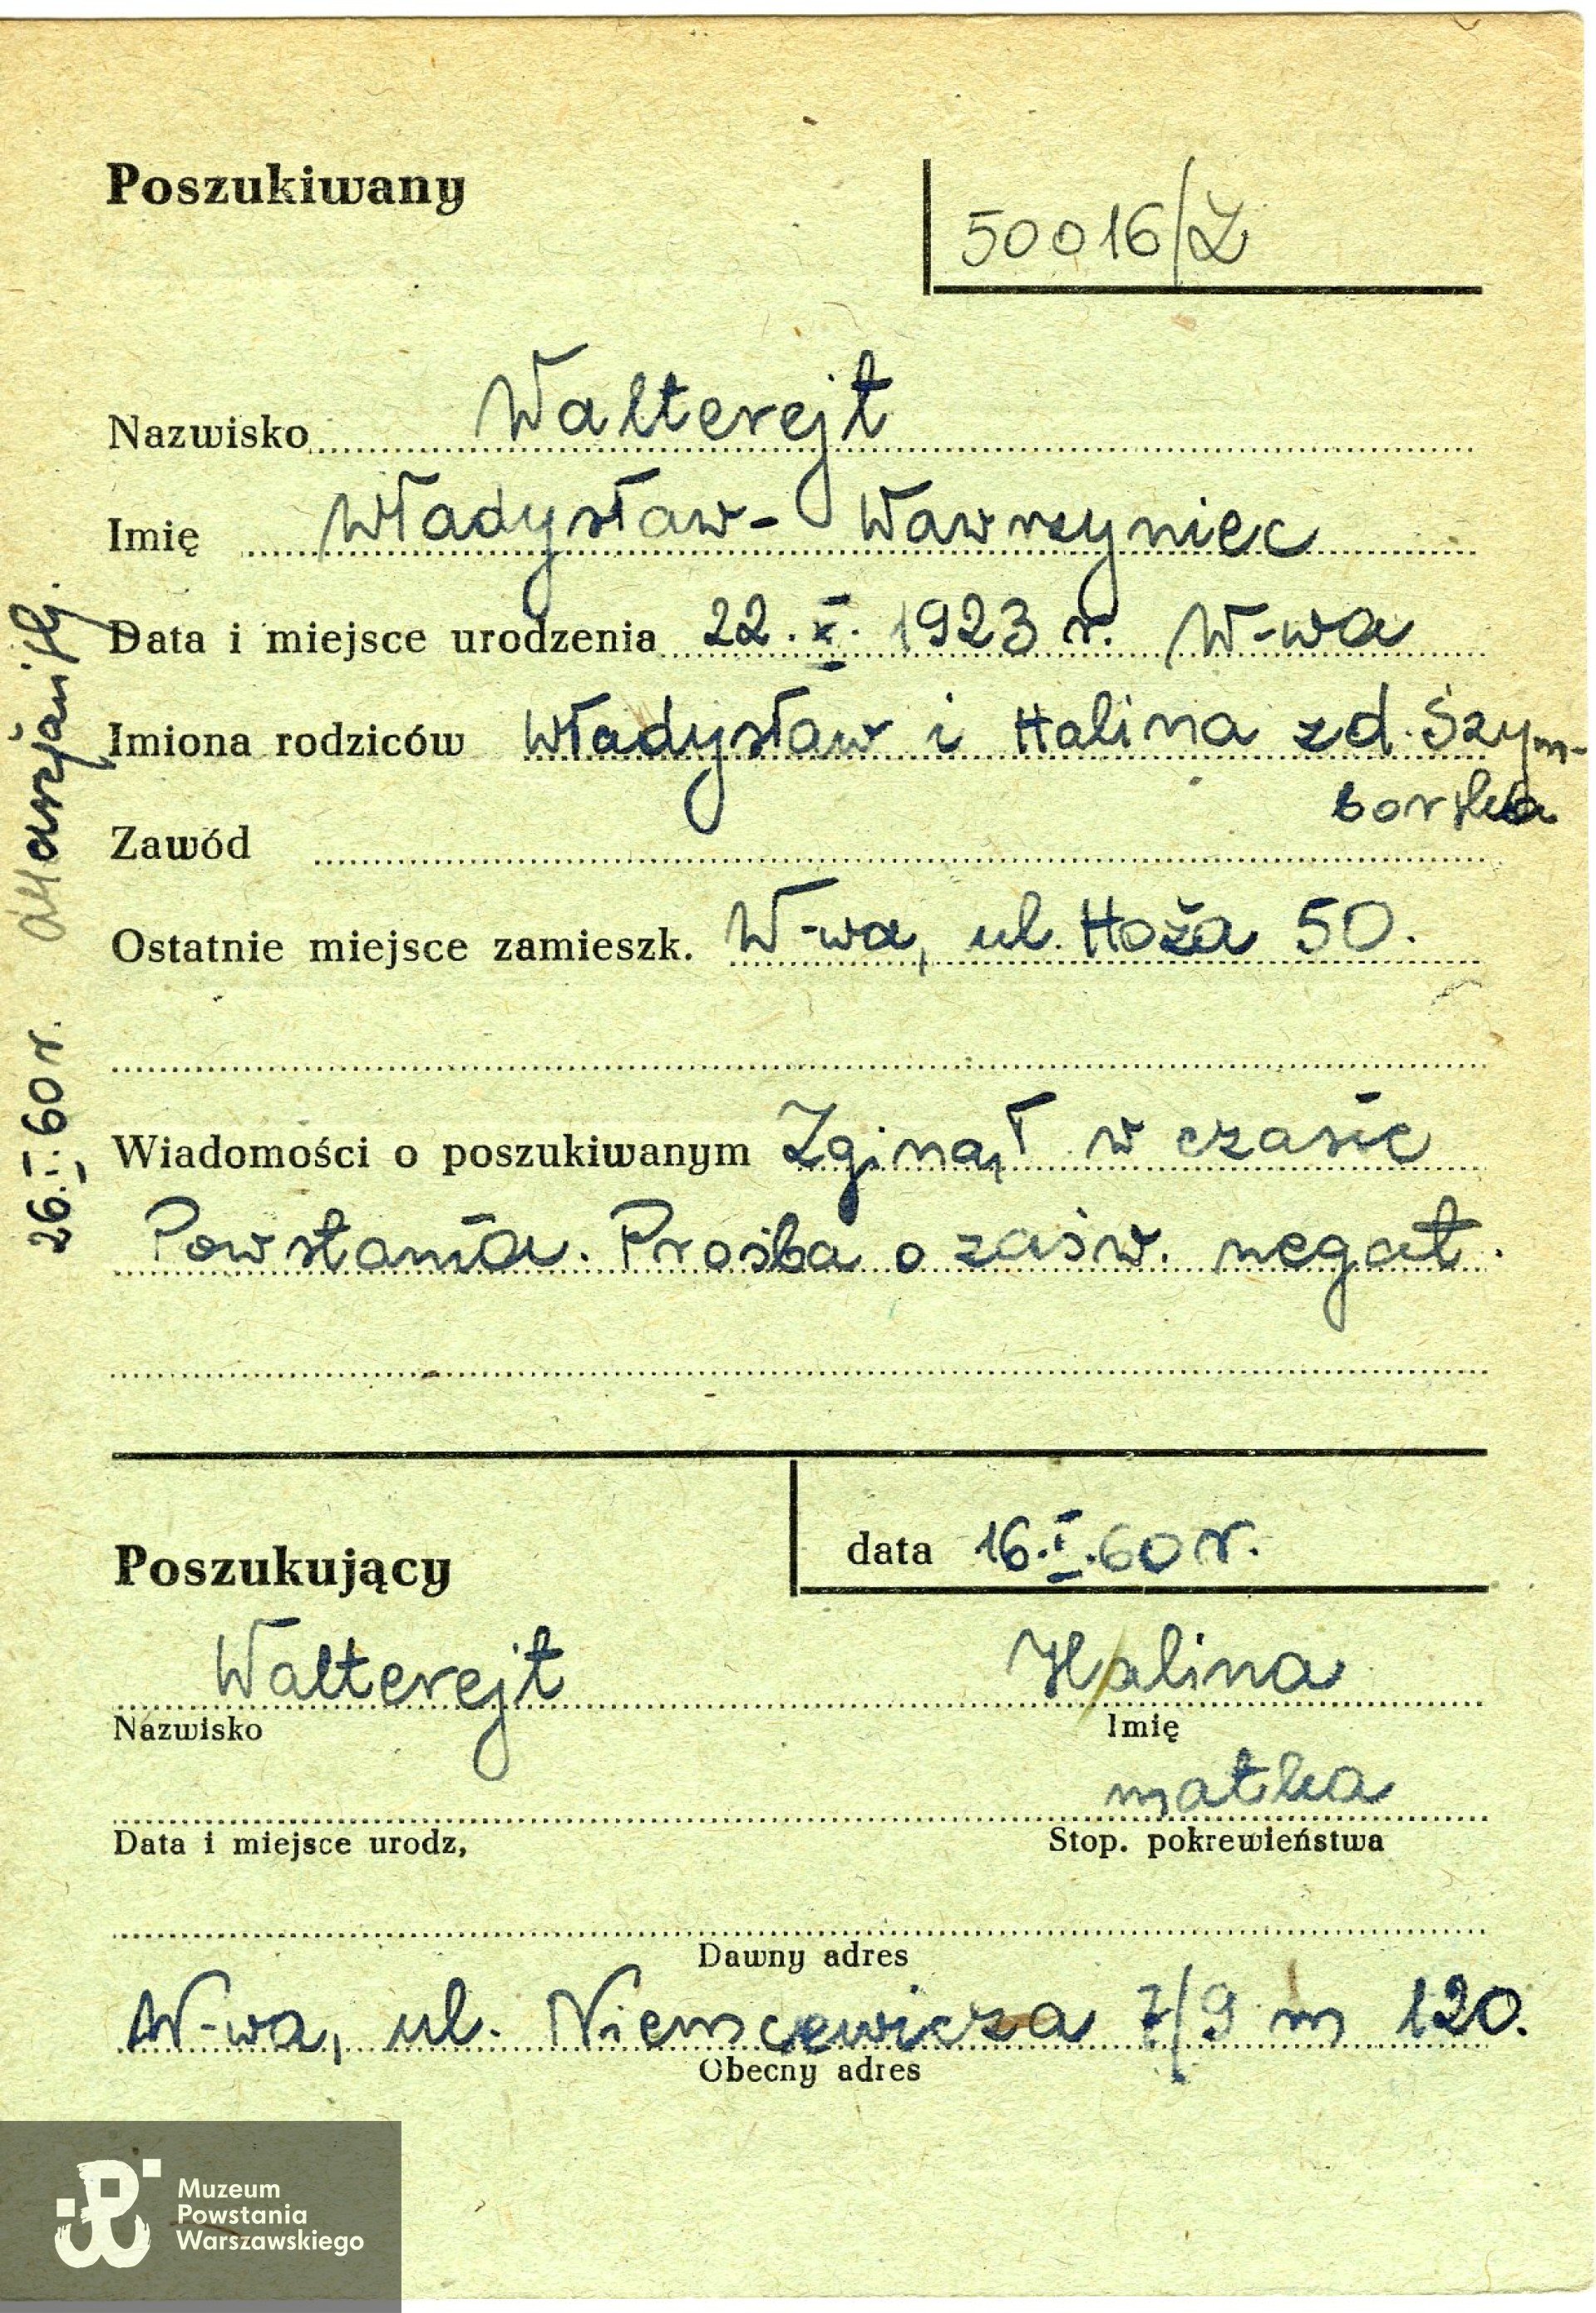 Poszukiwany
50016/Ż
Nazwisko Walterejt
Imię Władysław- Wawrzyniec
Data i miejsce urodzenia 22.X.1923 r. W-wa
Imiona rodziców Władysław i Halina zd. Szym-
borska
Zawód
Ostatnie miejsce zamieszk. W-wa, ul. Hoża 50.
Wiadomości o poszukiwanym Zginął w czasie
Powstania. Prośba o zaśw. negat.
26.I.60 r.
Poszukujący
data 16.I.60 r.
Walterejt Halina
Nazwisko Imię
matka
Data i miejsce urodz, Stop. pokrewieństwa
Dawny adres
W-wa, ul. Niemcewicza 7/9 m 120.
Obecny adres
Muzeum
Powstania
Warszawskiego